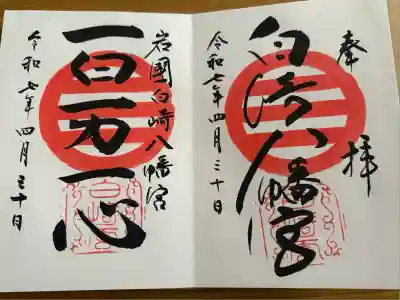 奉拝
白崎八幡宮
令和七年四月三十日
岩國白崎八幡宮
一日一力一心
令和七年四月三十日